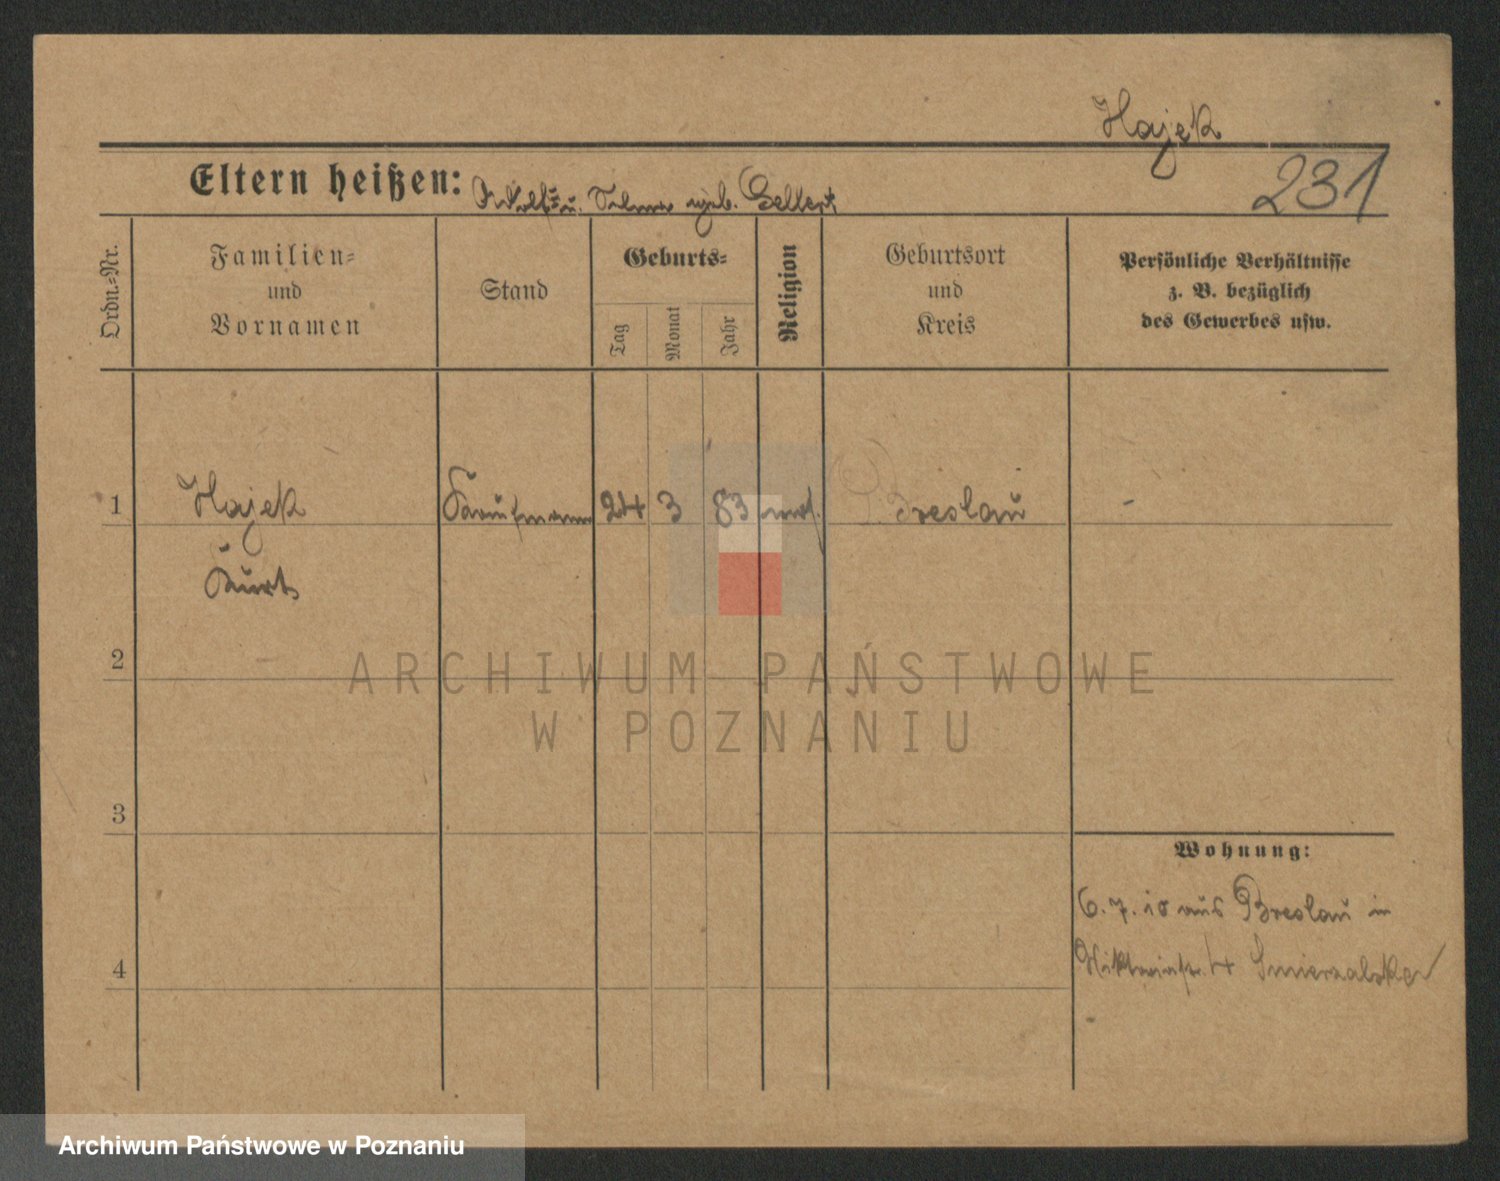 Hajek
231
Eltern heißen: Adolf u. Selma geb. Gellert
Ordn.-Nr.
Familien-
und
Vornamen
Stand
Geburts-
Tag
Monat
Jahr
Religion
Geburtsort
und
Kreis
Persönliche Verhältnisse
z. B. bezüglich
des Gewerbes usw.
1
Hajek
Kurt
Kaufmann
24
3
83
mos.
Breslau
-
2
3
4
Wohnung:
6.7.10 aus Breslau in
4 Smierzalska
ARCHIWUM PAŃSTWOWE
W POZNANIU
Archiwum Państwowe w Poznaniu